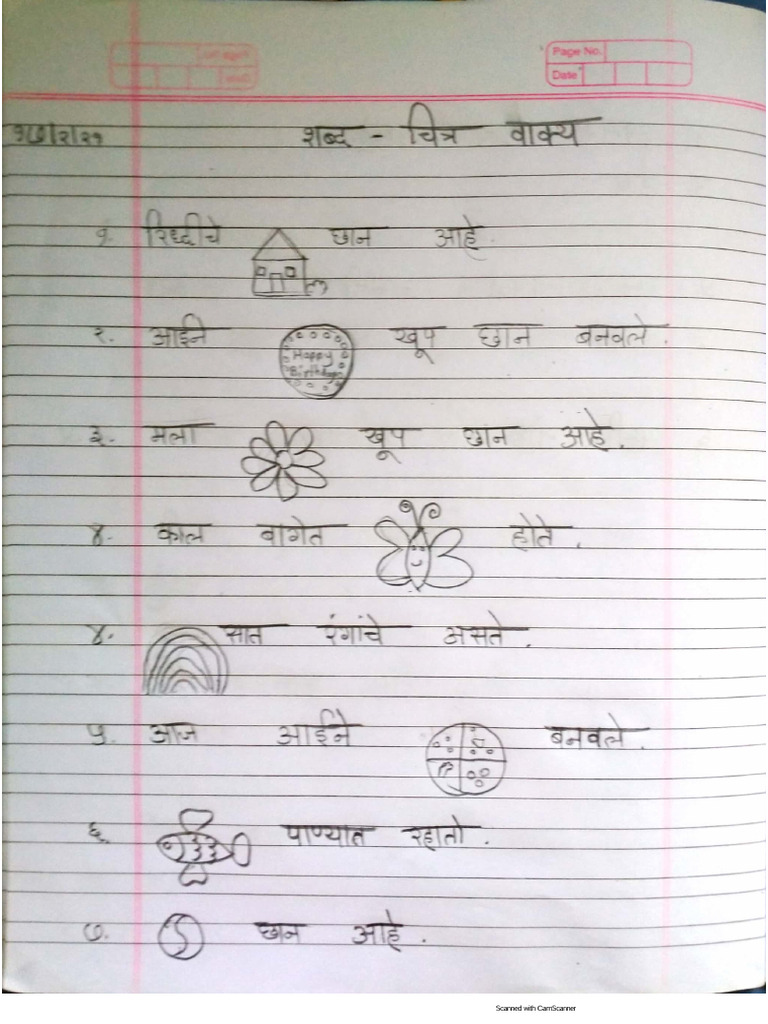 Page No.
Date
शब्द - चित्र वाक्य
१. रिध्दीचे छान आहे.
२. आईने Happy Birthday खूप छान बनवले.
३. मला खूप छान आहे.
४. काल बागेत होते.
४. सात रंगांचे असते.
५. आज आईने बनवले.
६. पाण्यात रहातो.
७. छान आहे.
Scanned with CamScanner